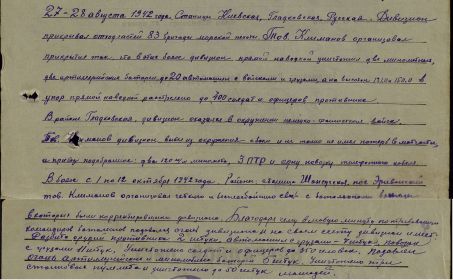 27-28 августа 1942 года. Станицы Киевская, Гладковская, Русская. Дивизион
прикрывал отход частей 83 бригады морской пехоты. Тов. Климанов организовал
прикрытие так, что в этих боях дивизион прямой наводкой уничтожил два миномета,
две артиллерийские батареи, до 20 автомашин с войсками и грузами, а на высотах 170,0 и 150,0 в
упор прямой наводкой расстреляно до 400 солдат и офицеров противника.
В районе Гладковская, дивизион оказался в окружении немецко-фашистских войск.
Тов. Климанов дивизион вывел из окружения и не только не имел потерь в матчасти,
а привез подобранные: два 120 м/м миномета, 3 ПТР и одну повозку телефонного кабеля.
В боях с 1 по 12 октября 1942 года. Район: станица Шапсугская, пос. Эриванский
тов. Климанов организовал четкую и бесперебойную связь с батальонами
в которых были корректировщики дивизиона. Благодаря чему в любую минуту по требованию
командиров батальонов подавался огонь. Дивизион на своем счету имеет:
Разбито орудий противника 2 штуки, автомашин с грузом - 5 штук, повозок
с грузами 14 штук. Уничтожено солдат и офицеров до 350 человек. подавлен
огонь артиллерийских и минометных батарей 6 штук. Уничтожено
станковых пулемета и уничтожено до 50 штук лошадей.